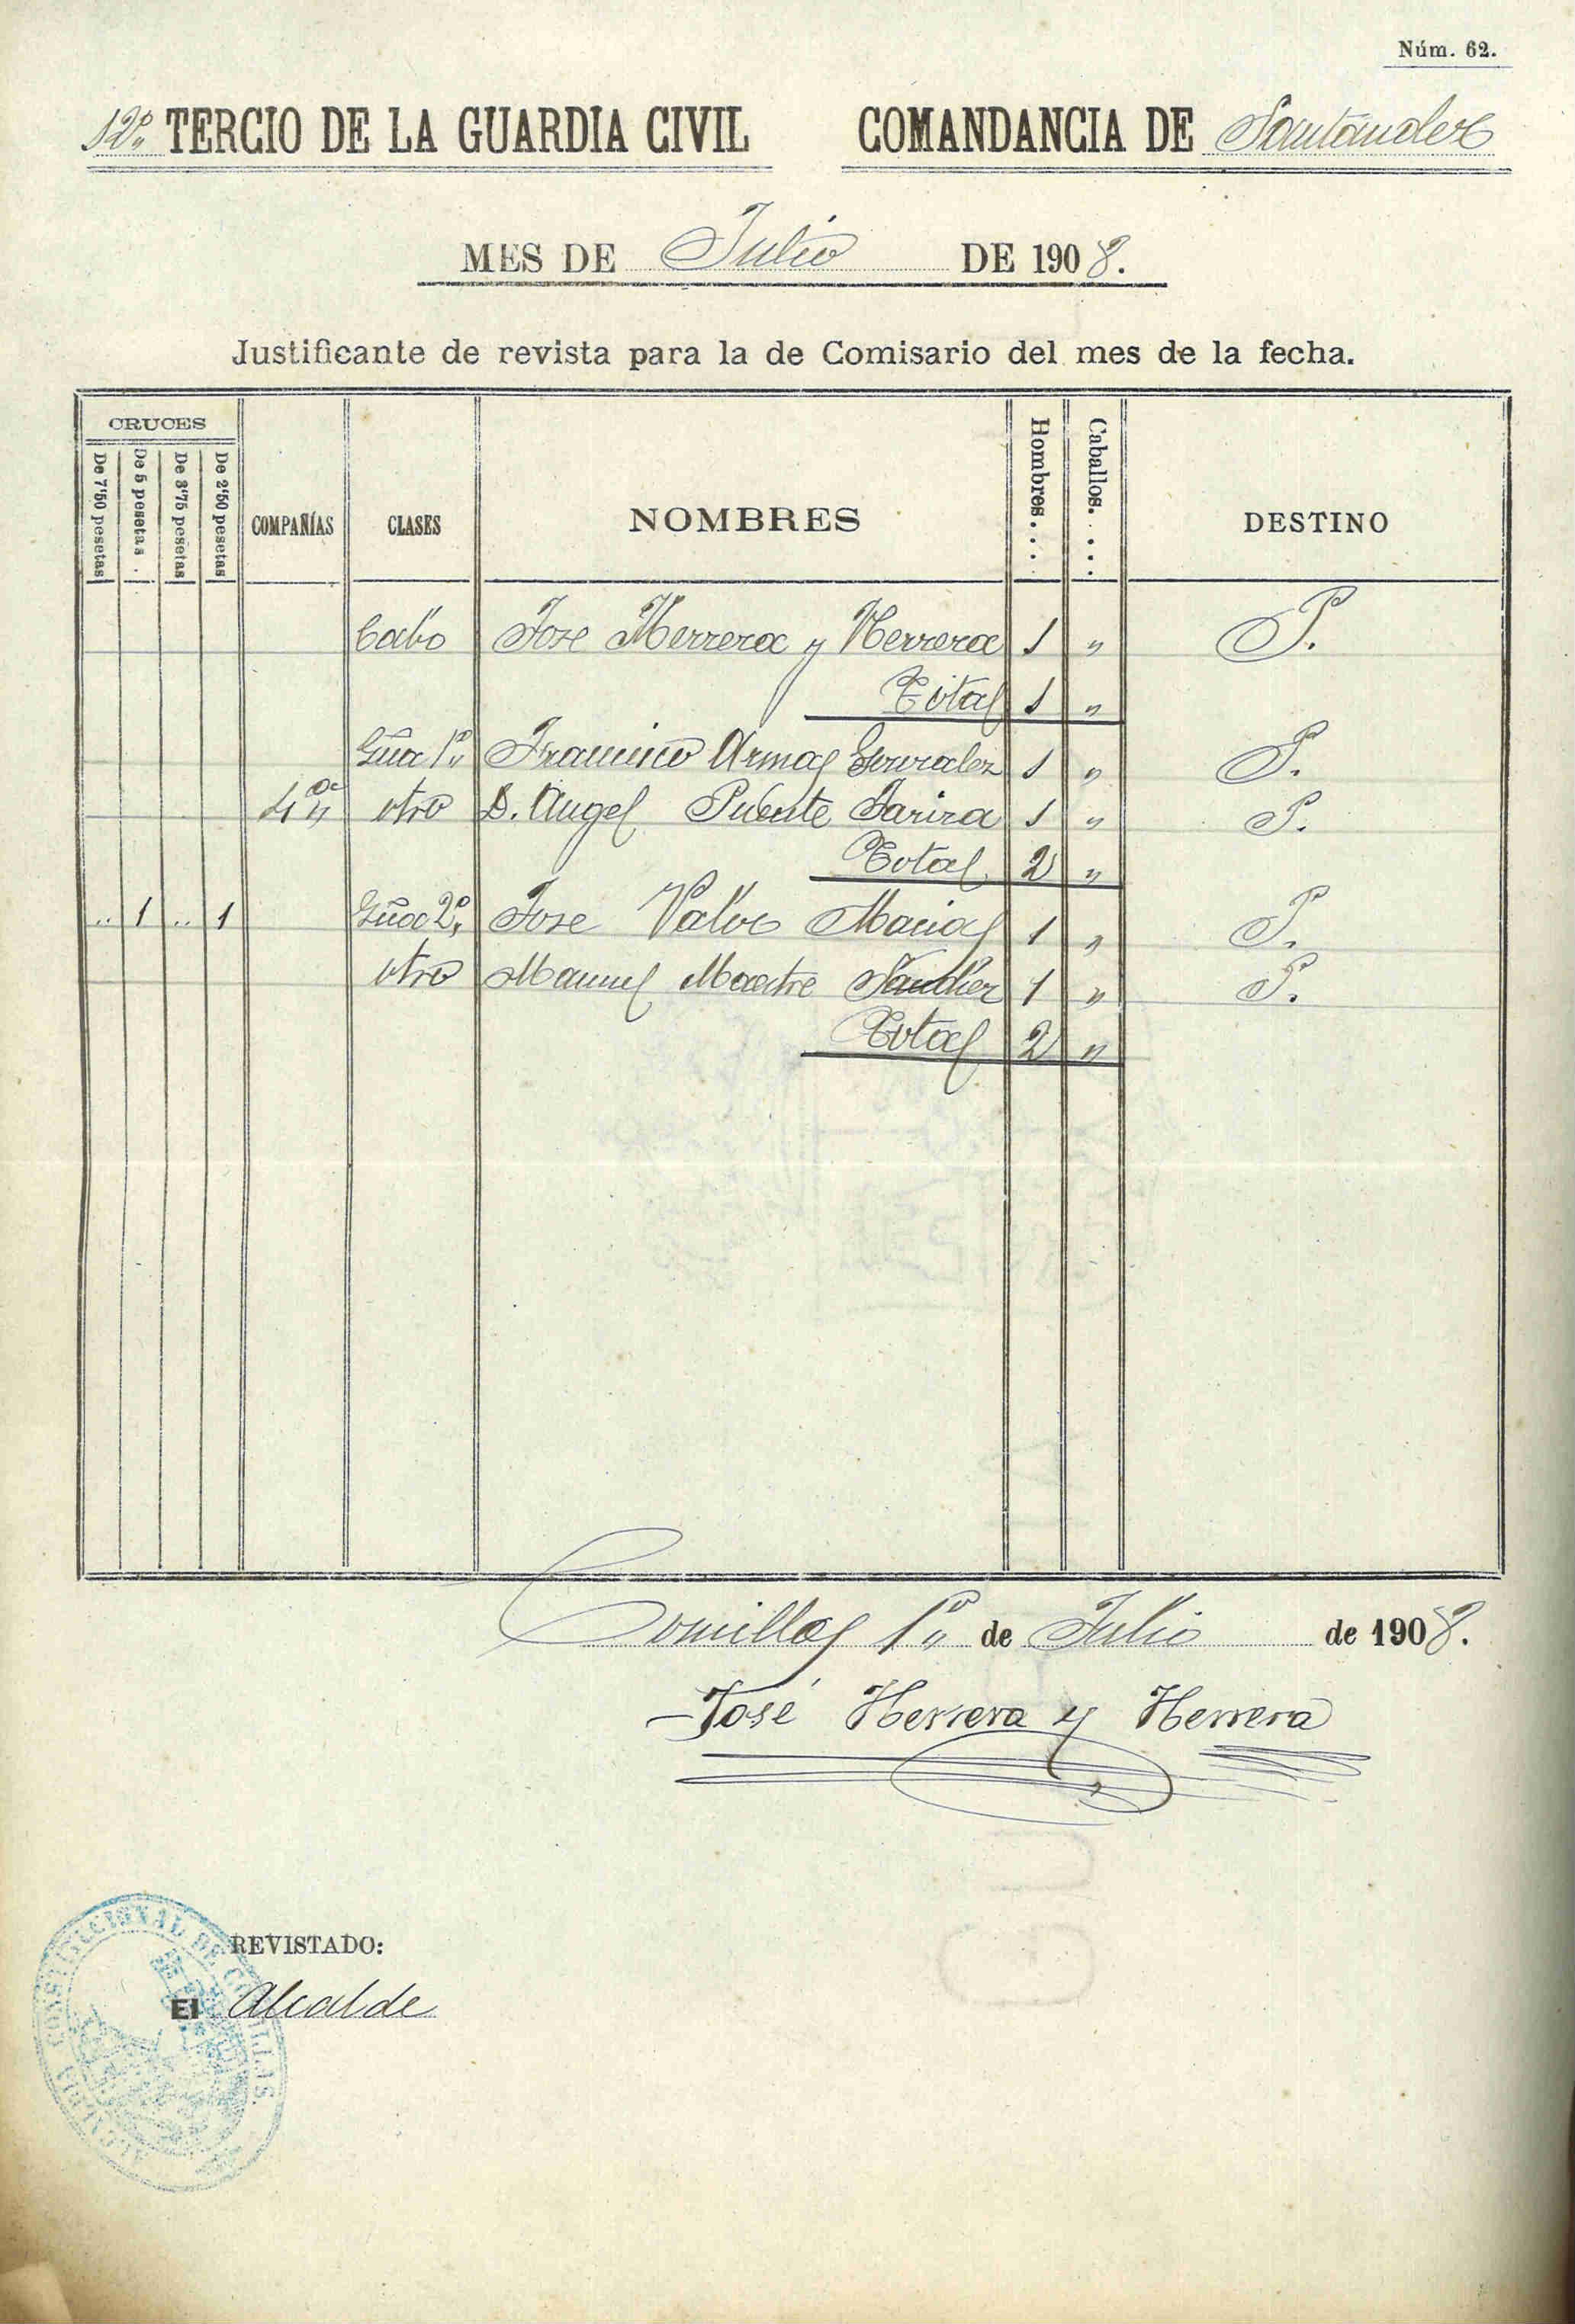 Núm. 62.
12º TERCIO DE LA GUARDIA CIVIL COMANDANCIA DE Santander
MES DE Julio DE 1908.
Justificante de revista para la de Comisario del mes de la fecha.
CRUCES
De 7'50 pesetas De 5 pesetas . De 3'75 pesetas De 2'50 pesetas COMPAÑÍAS CLASES NOMBRES Hombres. . . . Caballos. . . . DESTINO
Cabo Jose Herrera y Herrera 1 " P.
Total 1 "
Gúa 1º Francisco Armas Gonzalez 1 " P.
4ª otro D. Angel Puente 1 " P.
Total 2 "
.. 1 .. 1 Gúa 2º Jose Macias 1 " P.
otro Manuel Maestre 1 " P.
Total 2 "
Comillas 1º de Julio de 1908.
José Herrera y Herrera
REVISTADO:
El Alcalde
ALCALDIA CONSTITUCIONAL DE COMILLAS